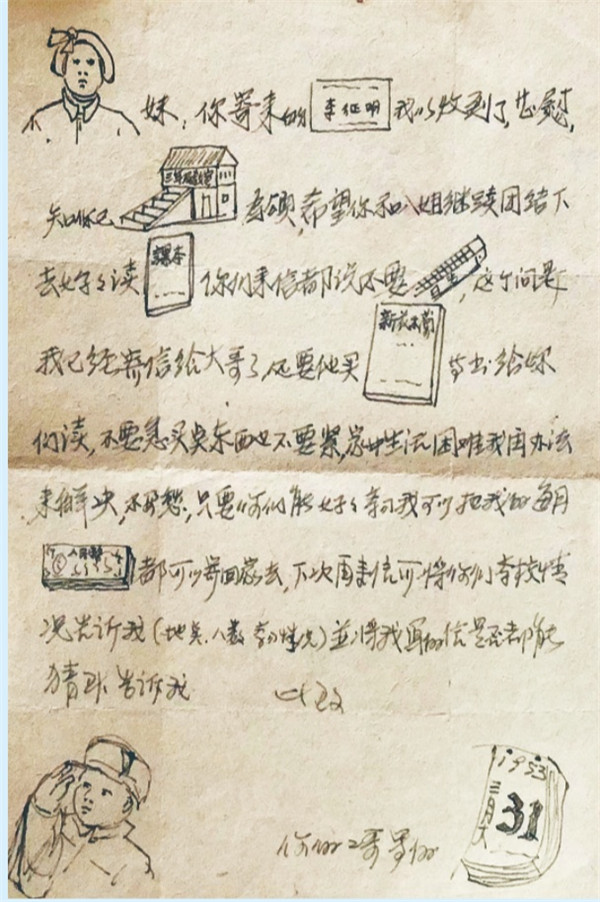 妹：你寄来的 李征明 我以收到了，甚慰，
知你已 三年级教室 希望你和八姐继续团结下
去好々读 课本 你们来信都说不要，这个问题
我已经寄信给大哥了，还要他买 新花木兰 等书给你
们读，不要急买东西也不要紧，家中生活困难我办法
来解决，不要愁，只要你们能好々学习我可以把我的每月
人民币 都可以寄回家去，下次再来信可将你们学校情
况告诉我（地点、人数 学习情况）並将我写的信是否都能
猜 告诉我 此致
1953
三月大
31
你的二哥写的